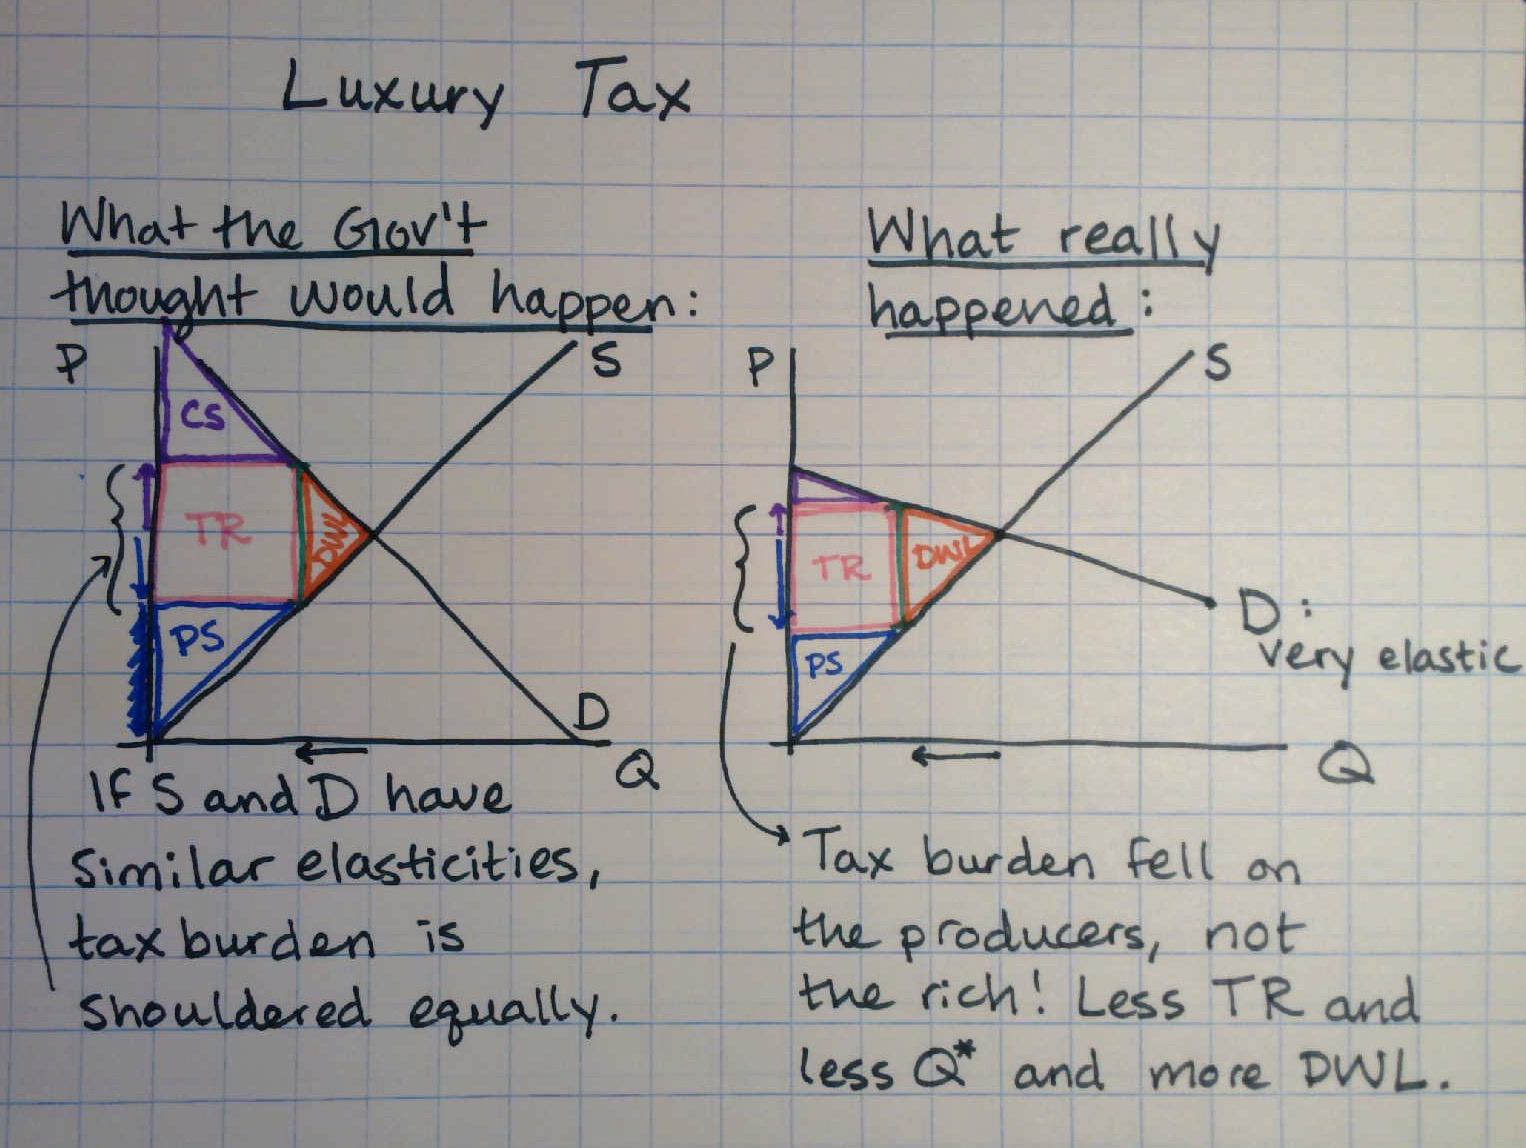 Luxury Tax
What the Gov't
thought would happen:
P
S
CS
TR
DWL
PS
D
Q
If S and D have
similar elasticities,
tax burden is
shouldered equally.
What really
happened:
P
S
TR
DWL
PS
D:
very elastic
Q
Tax burden fell on
the producers, not
the rich! Less TR and
less Q* and more DWL.